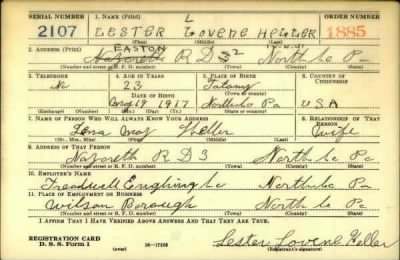 SERIAL NUMBER 1. NAME (Print) ORDER NUMBER
2107 LESTER L Lovene HELLER 1885
(First) (Middle) (Last)
2. ADDRESS (Print) EASTON
Nazareth R D 2 North Co Pa
(Number and street or R. F. D. number) (Town) (County) (State)
3. TELEPHONE 4. AGE IN YEARS 5. PLACE OF BIRTH 6. COUNTRY OF CITIZENSHIP
No 23 Tatamy
DATE OF BIRTH
May 1917 Pa U S A
(Exchange) (Number) (Mo.) (Day) (Yr.) (Town) (County) (State or country)
7. NAME OF PERSON WHO WILL ALWAYS KNOW YOUR ADDRESS 8. RELATIONSHIP OF THAT PERSON
May Heller Wife
(Mr., Mrs., Miss) (First) (Middle) (Last)
9. ADDRESS OF THAT PERSON
Nazareth R D 3 North Co Pa
(Number and street or R. F. D. number) (Town) (County) (State)
10. EMPLOYER'S NAME
Treadwell Co Pa
11. PLACE OF EMPLOYMENT OR BUSINESS
Wilson Borough North Co Pa
(Number and street or R. F. D. number) (Town) (County) (State)
I AFFIRM THAT I HAVE VERIFIED ABOVE ANSWERS AND THAT THEY ARE TRUE.
REGISTRATION CARD
D. S. S. Form 1 (over) Lester Lovene Heller
(Registrant's signature)